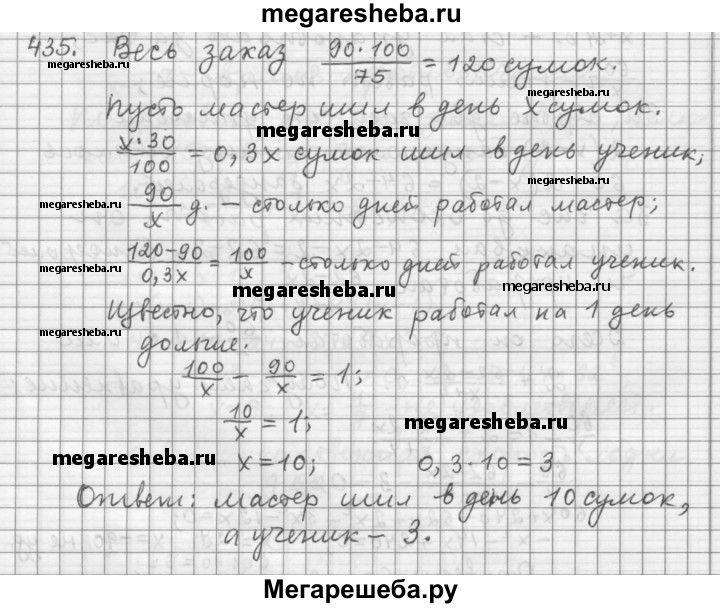 megaresheba.ru
435. Весь заказ 90·100/75 = 120 сумок.
megaresheba.ru
megaresheba.ru
Пусть мастер шил в день x сумок.
megaresheba.ru
x·30/100 = 0,3x сумок шил в день ученик;
megaresheba.ru
megaresheba.ru
90/x д. – столько дней работал мастер;
megaresheba.ru
120-90/0,3x = 100/x – столько дней работал ученик.
megaresheba.ru
megaresheba.ru
Известно, что ученик работал на 1 день
megaresheba.ru
дольше.
100/x – 90/x = 1;
10/x = 1;
megaresheba.ru
megaresheba.ru
x = 10; 0,3·10 = 3
Ответ: мастер шил в день 10 сумок,
а ученик – 3.
Мегарешеба.ру